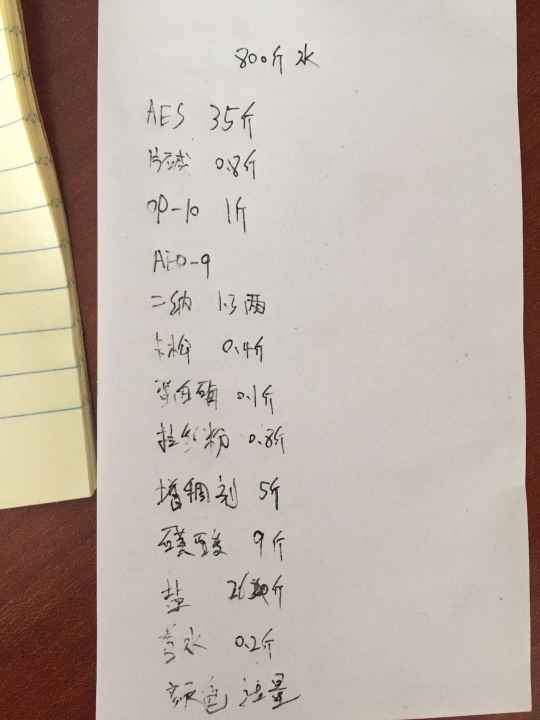 800斤 水
AES 35斤
片碱 0.8斤
OP-10 1斤
AEO-9
二纳 1.5两
卡松 0.4斤
蛋白酶 0.1斤
拉丝粉 0.8斤
增稠剂 5斤
磺酸 9斤
盐 斤
香水 0.2斤
颜色 适量